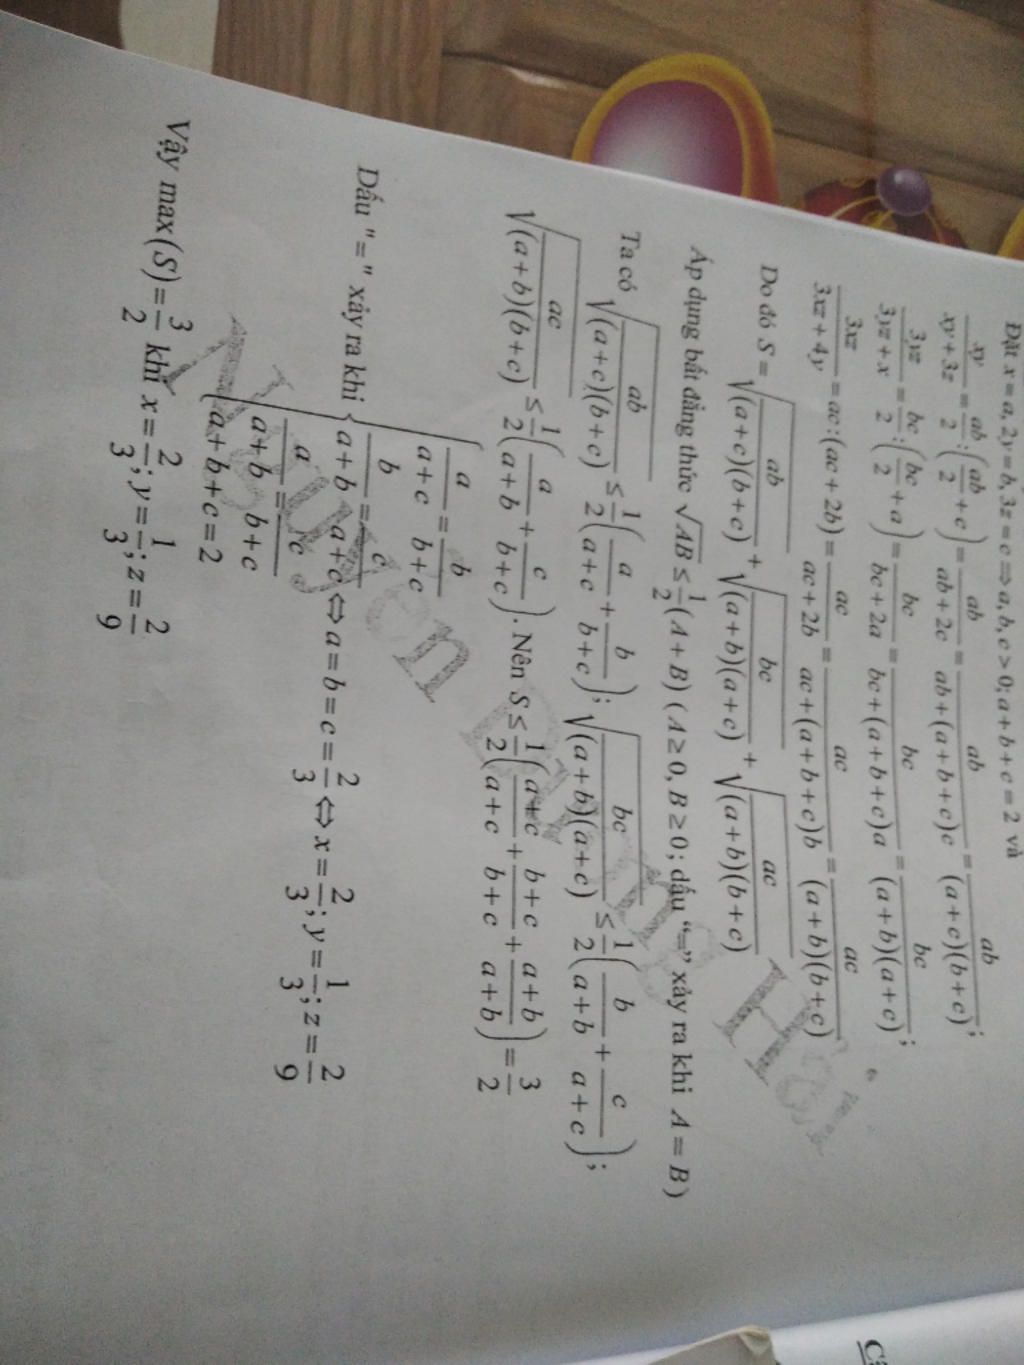 Đặt x = a, 2y = b, 3z = c ⇒ a, b, c > 0; a + b + c = 2 và
xy/(xy + 3z) = ab/2 : (ab/2 + c) = ab/(ab + 2c) = ab/(ab + (a + b + c)c) = ab/((a + c)(b + c));
3yz/(3yz + x) = bc/2 : (bc/2 + a) = bc/(bc + 2a) = bc/(bc + (a + b + c)a) = bc/((a + b)(a + c));
3xz/(3xz + 4y) = ac : (ac + 2b) = ac/(ac + 2b) = ac/(ac + (a + b + c)b) = ac/((a + b)(b + c))
Do đó S = √(ab/((a + c)(b + c))) + √(bc/((a + b)(a + c))) + √(ac/((a + b)(b + c)))
Áp dụng bất đẳng thức √AB ≤ 1/2 (A + B) (A ≥ 0, B ≥ 0; dấu “=” xảy ra khi A = B)
Ta có √(ab/((a + c)(b + c))) ≤ 1/2 (a/(a + c) + b/(b + c)); √(bc/((a + b)(a + c))) ≤ 1/2 (b/(a + b) + c/(a + c));
√(ac/((a + b)(b + c))) ≤ 1/2 (a/(a + b) + c/(b + c)). Nên S ≤ 1/2 ((a + c)/(a + c) + (b + c)/(b + c) + (a + b)/(a + b)) = 3/2
Dấu "=" xảy ra khi { a/(a + c) = b/(b + c)
b/(a + b) = c/(a + c) ⇔ a = b = c = 2/3 ⇔ x = 2/3; y = 1/3; z = 2/9
a/(a + b) = c/(b + c)
a + b + c = 2
Vậy max(S) = 3/2 khi x = 2/3; y = 1/3; z = 2/9